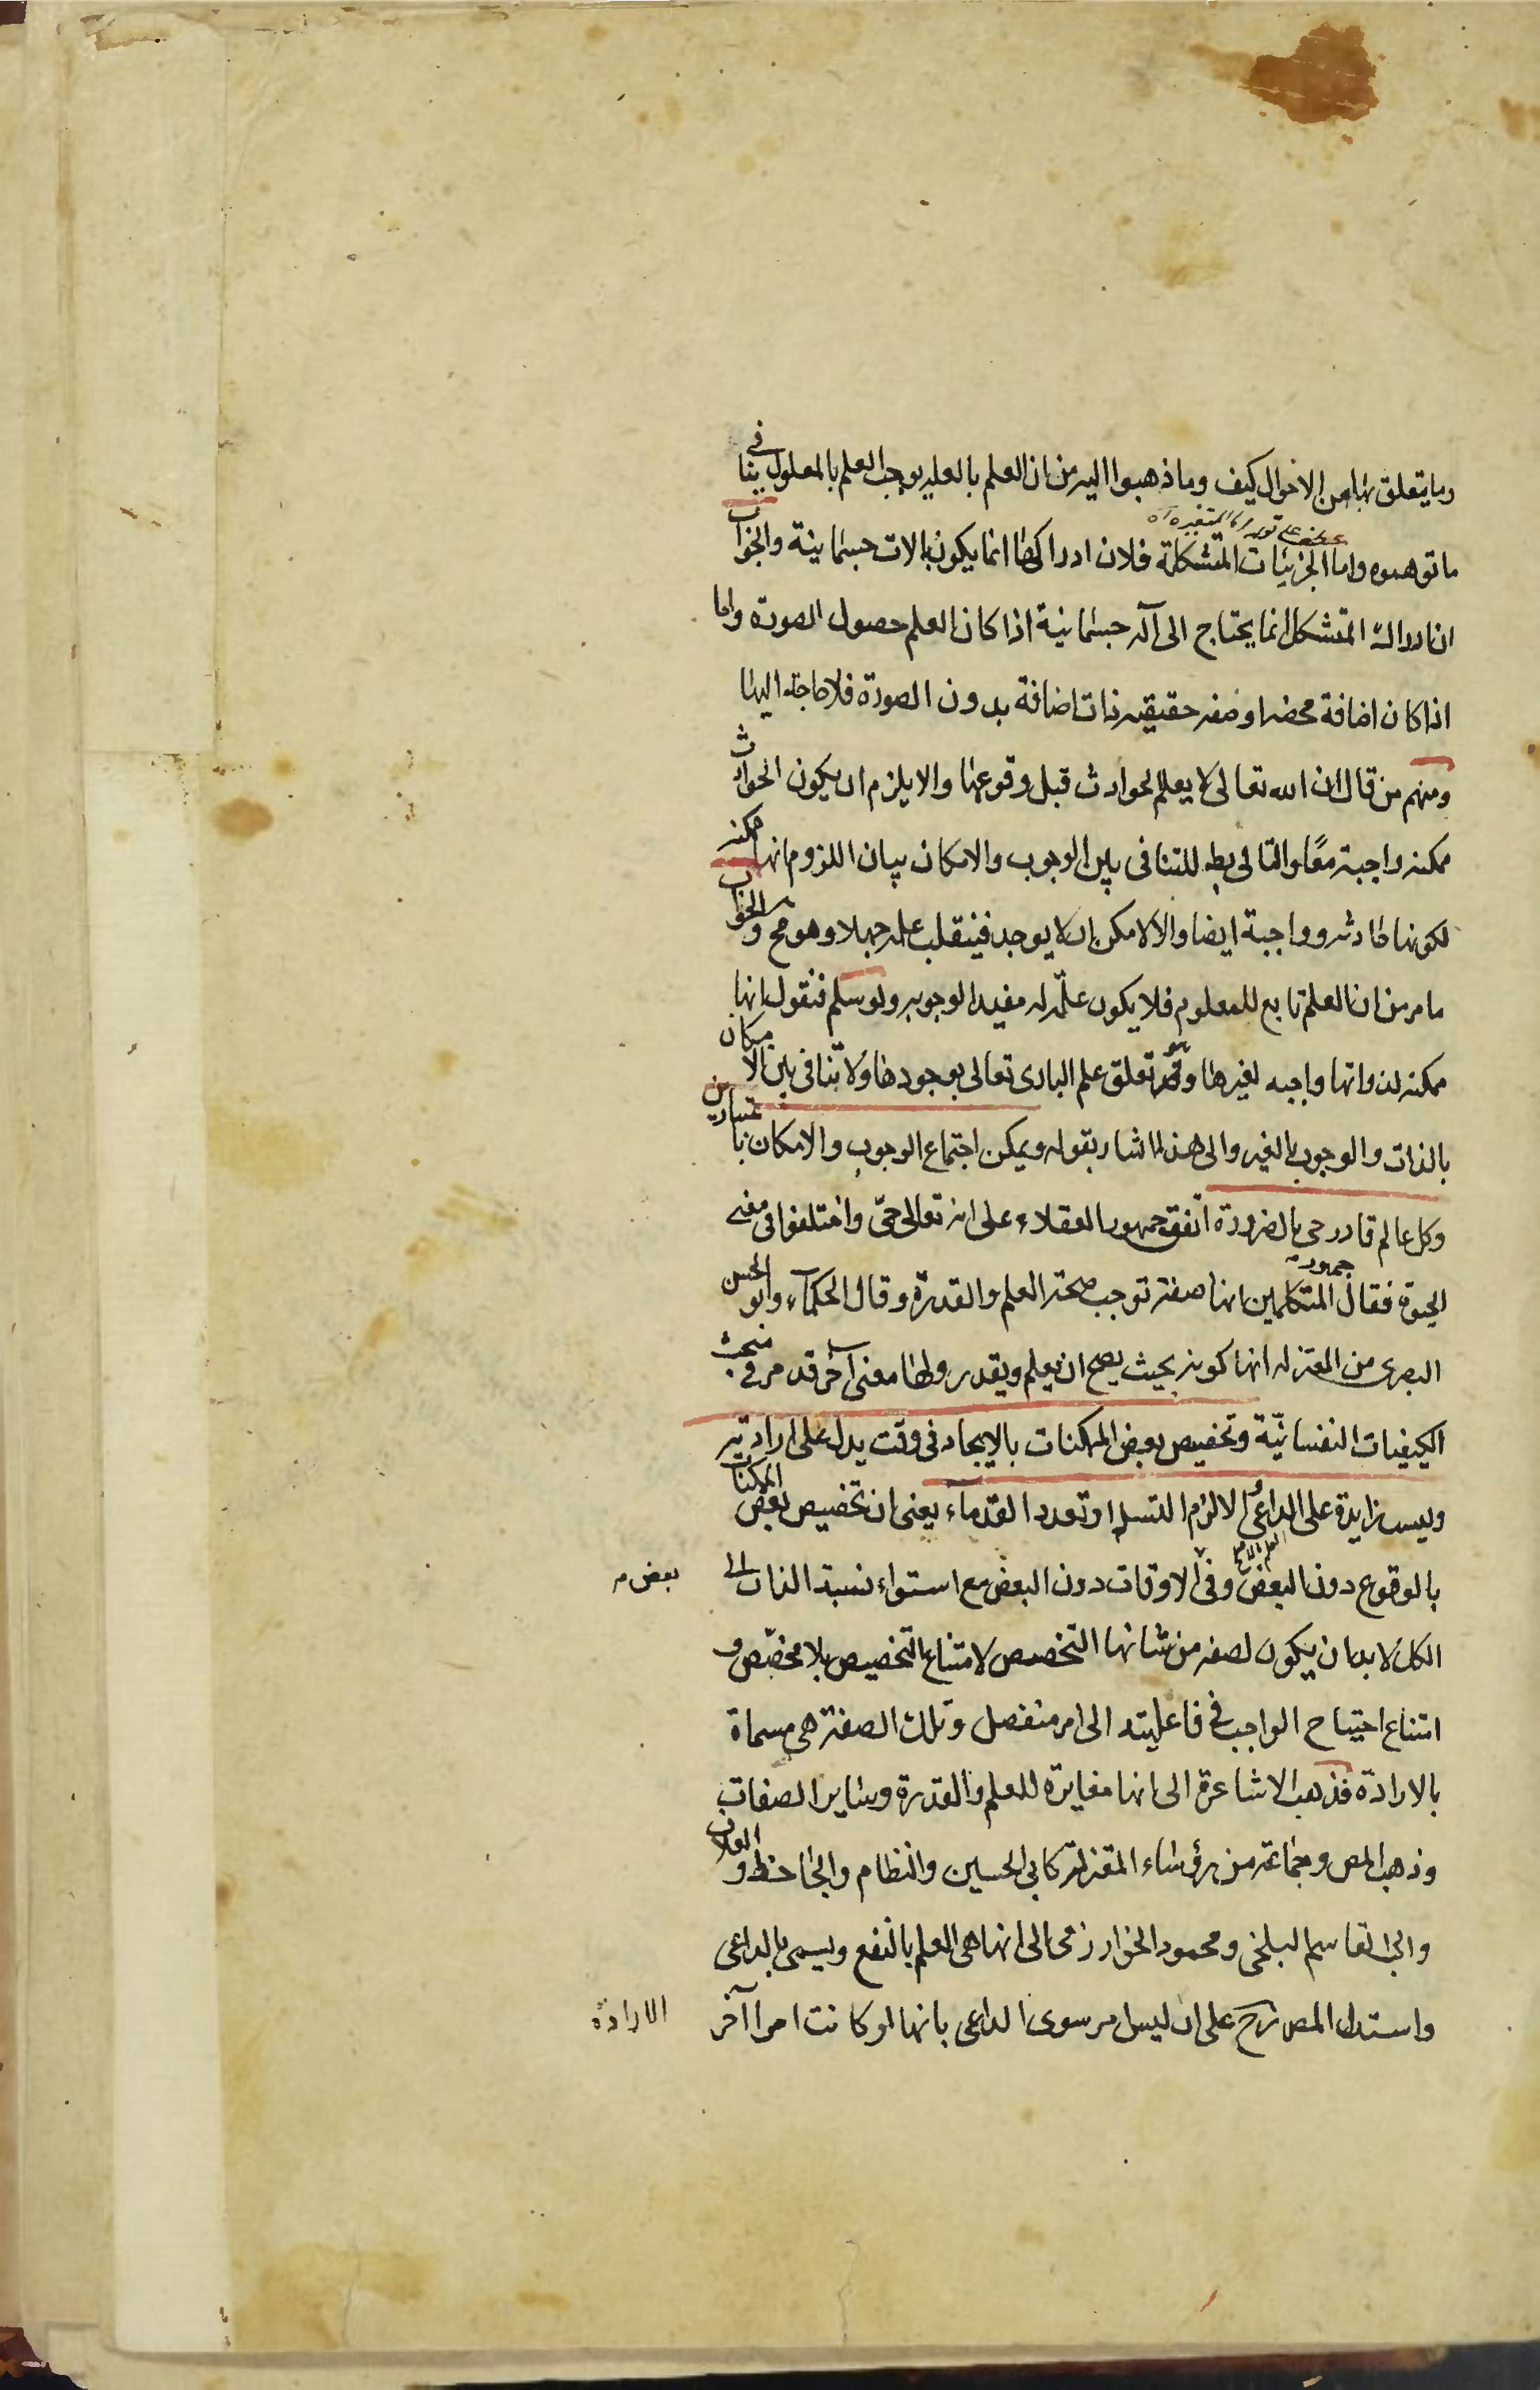 وما يتعلق بها من الاحوال كيف وما ذهبوا اليه من ان العلم بالعلة يوجب العلم بالمعلول ينافى
ما توهموه واما الجزئيات المتشكلة فلان ادراكها انما يكون بالات جسمانية والجواب
ان ادراك المتشكل انما يحتاج الى آلة جسمانية اذا كان العلم حصول الصورة واما
اذا كان اضافة محضة او صفة حقيقية ذات اضافة بدون الصورة فلا حاجة اليها
ومنهم من قال ان الله تعالى لا يعلم الحوادث قبل وقوعها والا يلزم ان يكون الحوادث
ممكنة واجبة معًا والتالى بط للتنافى بين الوجوب والامكان بيان اللزوم انها ممكنة
لكونها حادثة وواجبة ايضا والا لامكن ان لا يوجد فينقلب علمه جهلا وهو مح والجواب
ما مر من ان العلم تابع للمعلوم فلا يكون علّة له مفيدا لوجوبه ولو سلم فنقول انها
ممكنة لذواتها واجبه لغيرها وهو تعلق علم البارى تعالى بوجودها ولا تنافى بين الامكان
بالذات والوجوب بالغير والى هذا اشار بقوله ويمكن اجتماع الوجوب والامكان باعتبارين
وكل عالم قادر حى بالضرورة اتفق جمهور العقلاء على انه تعالى حىّ واختلفوا فى معنى
الحيوة فقال جمهور المتكلمين انها صفة توجب صحة العلم والقدرة وقال الحكماء وابو الحسين
البصرى من المعتزلة انها كونه بحيث يصح ان يعلم ويقدر ولها معنى آخر قد مر فى مبحث
الكيفيات النفسانيّة وتخصيص بعض الممكنات بالايجاد فى وقت يدل على ارادته
وليست زايدة على الداعى والا لزم التسلسل او تعدد القدماء يعنى ان تخصيص بعض الممكنات
بالوقوع دون البعض وفى بعض الاوقات دون البعض مع استواء نسبة الذات الى
الكل لا بد ان يكون لصفة من شانها التخصيص لامتناع التخصيص بلا مخصّص و
امتناع احتياج الواجب فى فاعليته الى امر منفصل وتلك الصفة هى مسماة
بالارادة فذهب الاشاعرة الى انها مغايرة للعلم والقدرة وساير الصفات
وذهب المص وجماعة من رؤساء المعتزلة كابى الحسين والنظام والجاحظ والعلاف
وابى القاسم البلخى ومحمود الخوارزمى الى انها هى العلم بالنفع ويسمى بالداعى
واستدل المص رح على ان ليس امر سوى الداعى بانها لو كانت امرا آخر
الارادة